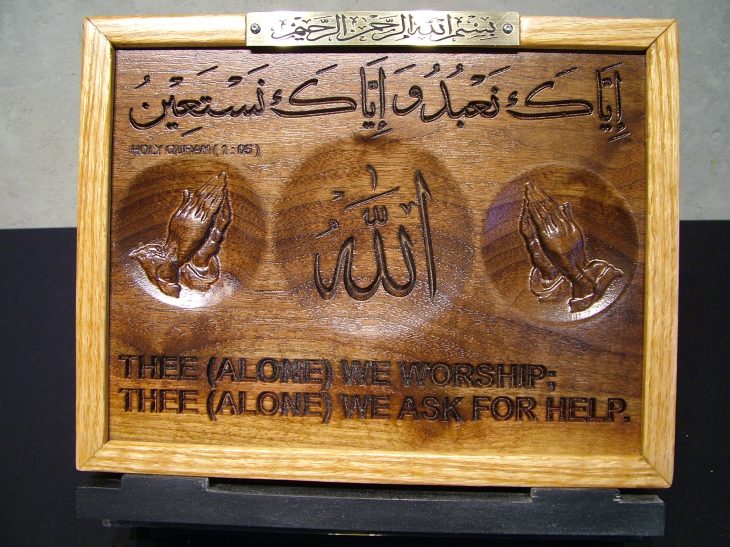 بسم الله الرحمن الرحيم
إِيَّاكَ نَعْبُدُ وَ إِيَّاكَ نَسْتَعِيْنُ
HOLY QURAN ( 1 : 05 )
الله
THEE (ALONE) WE WORSHIP;
THEE (ALONE) WE ASK FOR HELP.